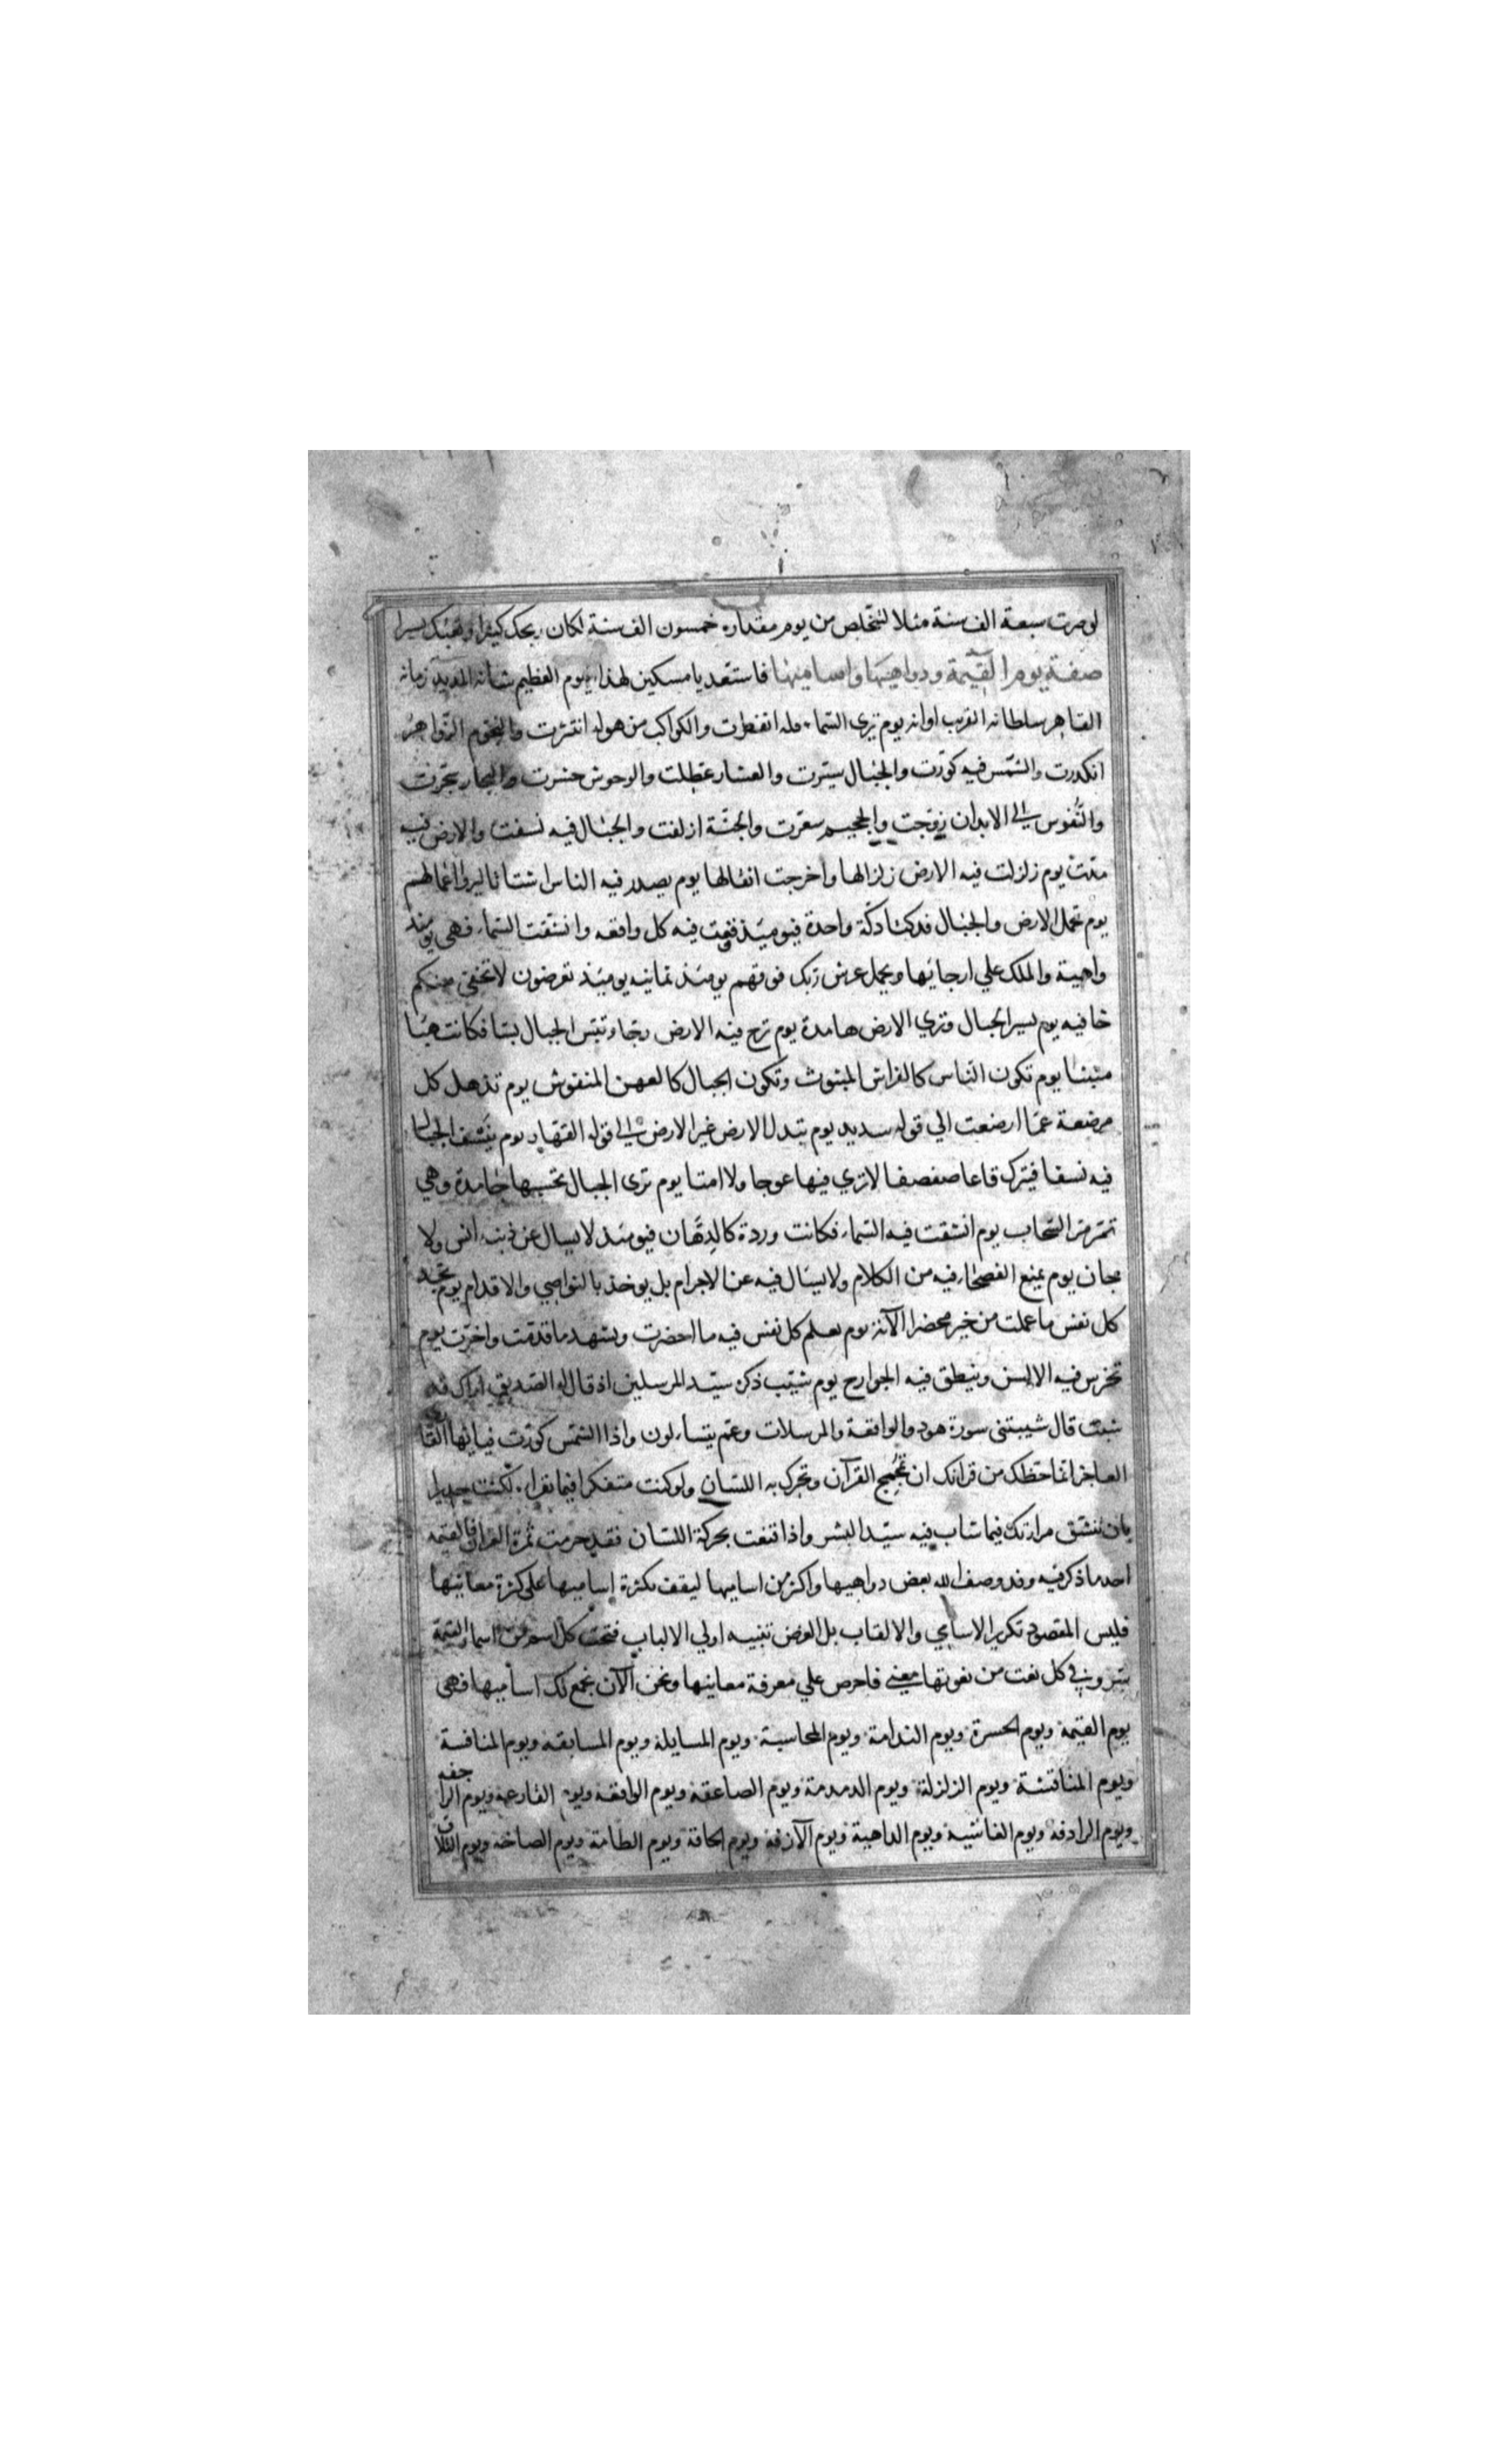 لو صبرت سبعة الف سنة مثلا لتتخلص من يوم مقداره خمسون الف سنة لكان ربحك كثيرا وتعبك يسيرا
صفة يوم القيمة ودواهيها واساميها فاستعد يا مسكين لهذا اليوم العظيم شانه المديد زمانه
القاهر سلطانه القريب اوانه يوم تري السماء فيه انفطرت والكواكب من هوله انتثرت والنجوم الزواهر
انكدرت والشمس فيه كورت والجبال سيرت والعشار عطلت والوحوش حشرت والبحار سجرت
والنفوس الي الابدان زوجت والجحيم سعرت والجنة ازلفت والجبال فيه نسفت والارض فيه
مدت يوم زلزلت فيه الارض زلزالها واخرجت اثقالها يوم يصدر فيه الناس اشتاتا ليروا اعمالهم
يوم تحمل الارض والجبال فدكتا دكة واحدة فيومئذ وقعت فيه كل واقعه وانشقت السماء فهي يومئذ
واهية والملك علي ارجائها ويحمل عرش ربك فوقهم يومئذ ثمانيه يومئذ تعرضون لا تخفي منكم
خافيه يوم يسير الجبال وتري الارض هامدة يوم ترج فيه الارض رجا وتبس الجبال بسا فكانت هبا
منبثا يوم تكون الناس كالفراش المبثوث وتكون الجبال كالعهن المنفوش يوم تذهل كل
مرضعة عما ارضعت الي قوله سديد يوم تبدل الارض غير الارض الي قوله القهار يوم ينسف الجبال
فيه نسفا فيترك قاعا صفصفا لا تري فيها عوجا ولا امتا يوم تري الجبال تحسبها جامدة وهي
تمر مر السحاب يوم انشقت فيه السماء فكانت وردة كالدهان فيومئذ لا يسال عن ذنبه انس ولا
جان يوم يمنع الفصحاء فيه من الكلام ولا يسال فيه عن الاجرام بل يوخذ بالنواصي والاقدام يوم تجد
كل نفس ما عملت من خير محضرا الآية يوم يعلم كل نفس فيه ما احضرت ويشهد ما قدمت واخرت يوم
تخرس فيه الالسن وينطق فيه الجوارح يوم شيب ذكره سيد المرسلين اذ قال له الصديق اراك قد
شبت قال شيبتني سورة هود والواقعة والمرسلات وعم يتساءلون واذا الشمس كورت فيا ايها القاري
العاجز انما حظك من قرانك ان تمجمج القرآن وتحرك به اللسان ولو كنت متفكرا فيما تقراء لكنت جديرا
بان تنشق مرارتك فيما شاب فيه سيد البشر واذا قنعت بحركة اللسان فقد حرمت ثمرة القران فالقيمة
احد ما ذكر فيه وقد وصف الله بعض دواهيها واكثر من اساميها ليقف بكثرة اساميها علي كثرة معانيها
فليس المقصود تكرير الاسامي والالقاب بل الغرض تنبيه اولي الالباب فتحت كل اسم من اسماء القيمة
سر وفي كل نعت من نعوتها معني فاحرص علي معرفة معانيها ونحن الآن نجمع لك اساميها فهي
يوم القيمة ويوم الحسرة ويوم الندامة ويوم المحاسبة ويوم المسايلة ويوم المسابقة ويوم المنافسة
ويوم المناقشة ويوم الزلزلة ويوم الدمدمة ويوم الصاعقة ويوم الواقعة ويوم القارعة ويوم الراجفه
ويوم الرادفة ويوم الغاشية ويوم الداهية ويوم الآزفة ويوم الحاقة ويوم الطامة ويوم الصاخة ويوم التلاق